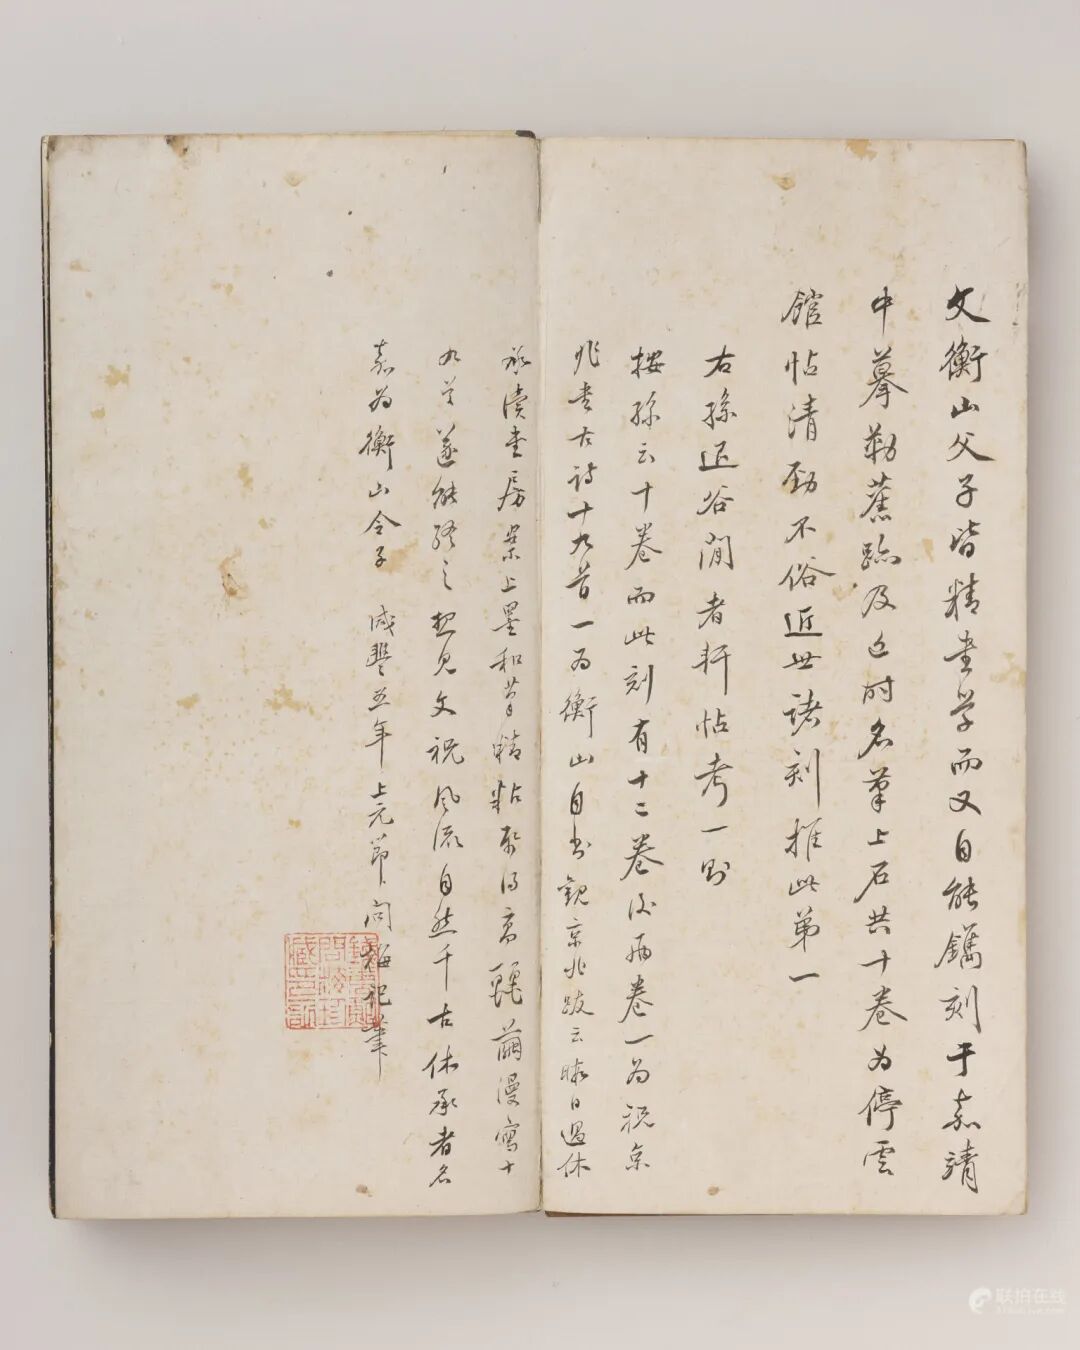 文衡山父子皆精書學而又自能鐫刻于嘉靖
中摹勒舊跡及近時名筆上石共十卷為停雲
館帖清勁不俗近世諸刻推此第一
右孫退谷閒者軒帖考一則
按孫云十卷而此刻有十二卷後兩卷一為祝京
兆書古詩十九首一為衡山自書觀京兆跋云暇日過休
承讀書房案上墨和筆精粘紙得高麗繭漫寫十
九首遂能終之想見文祝風流自然千古休承者名
嘉為衡山令子 咸豐五年上元節問梅記筆
聯拍在線